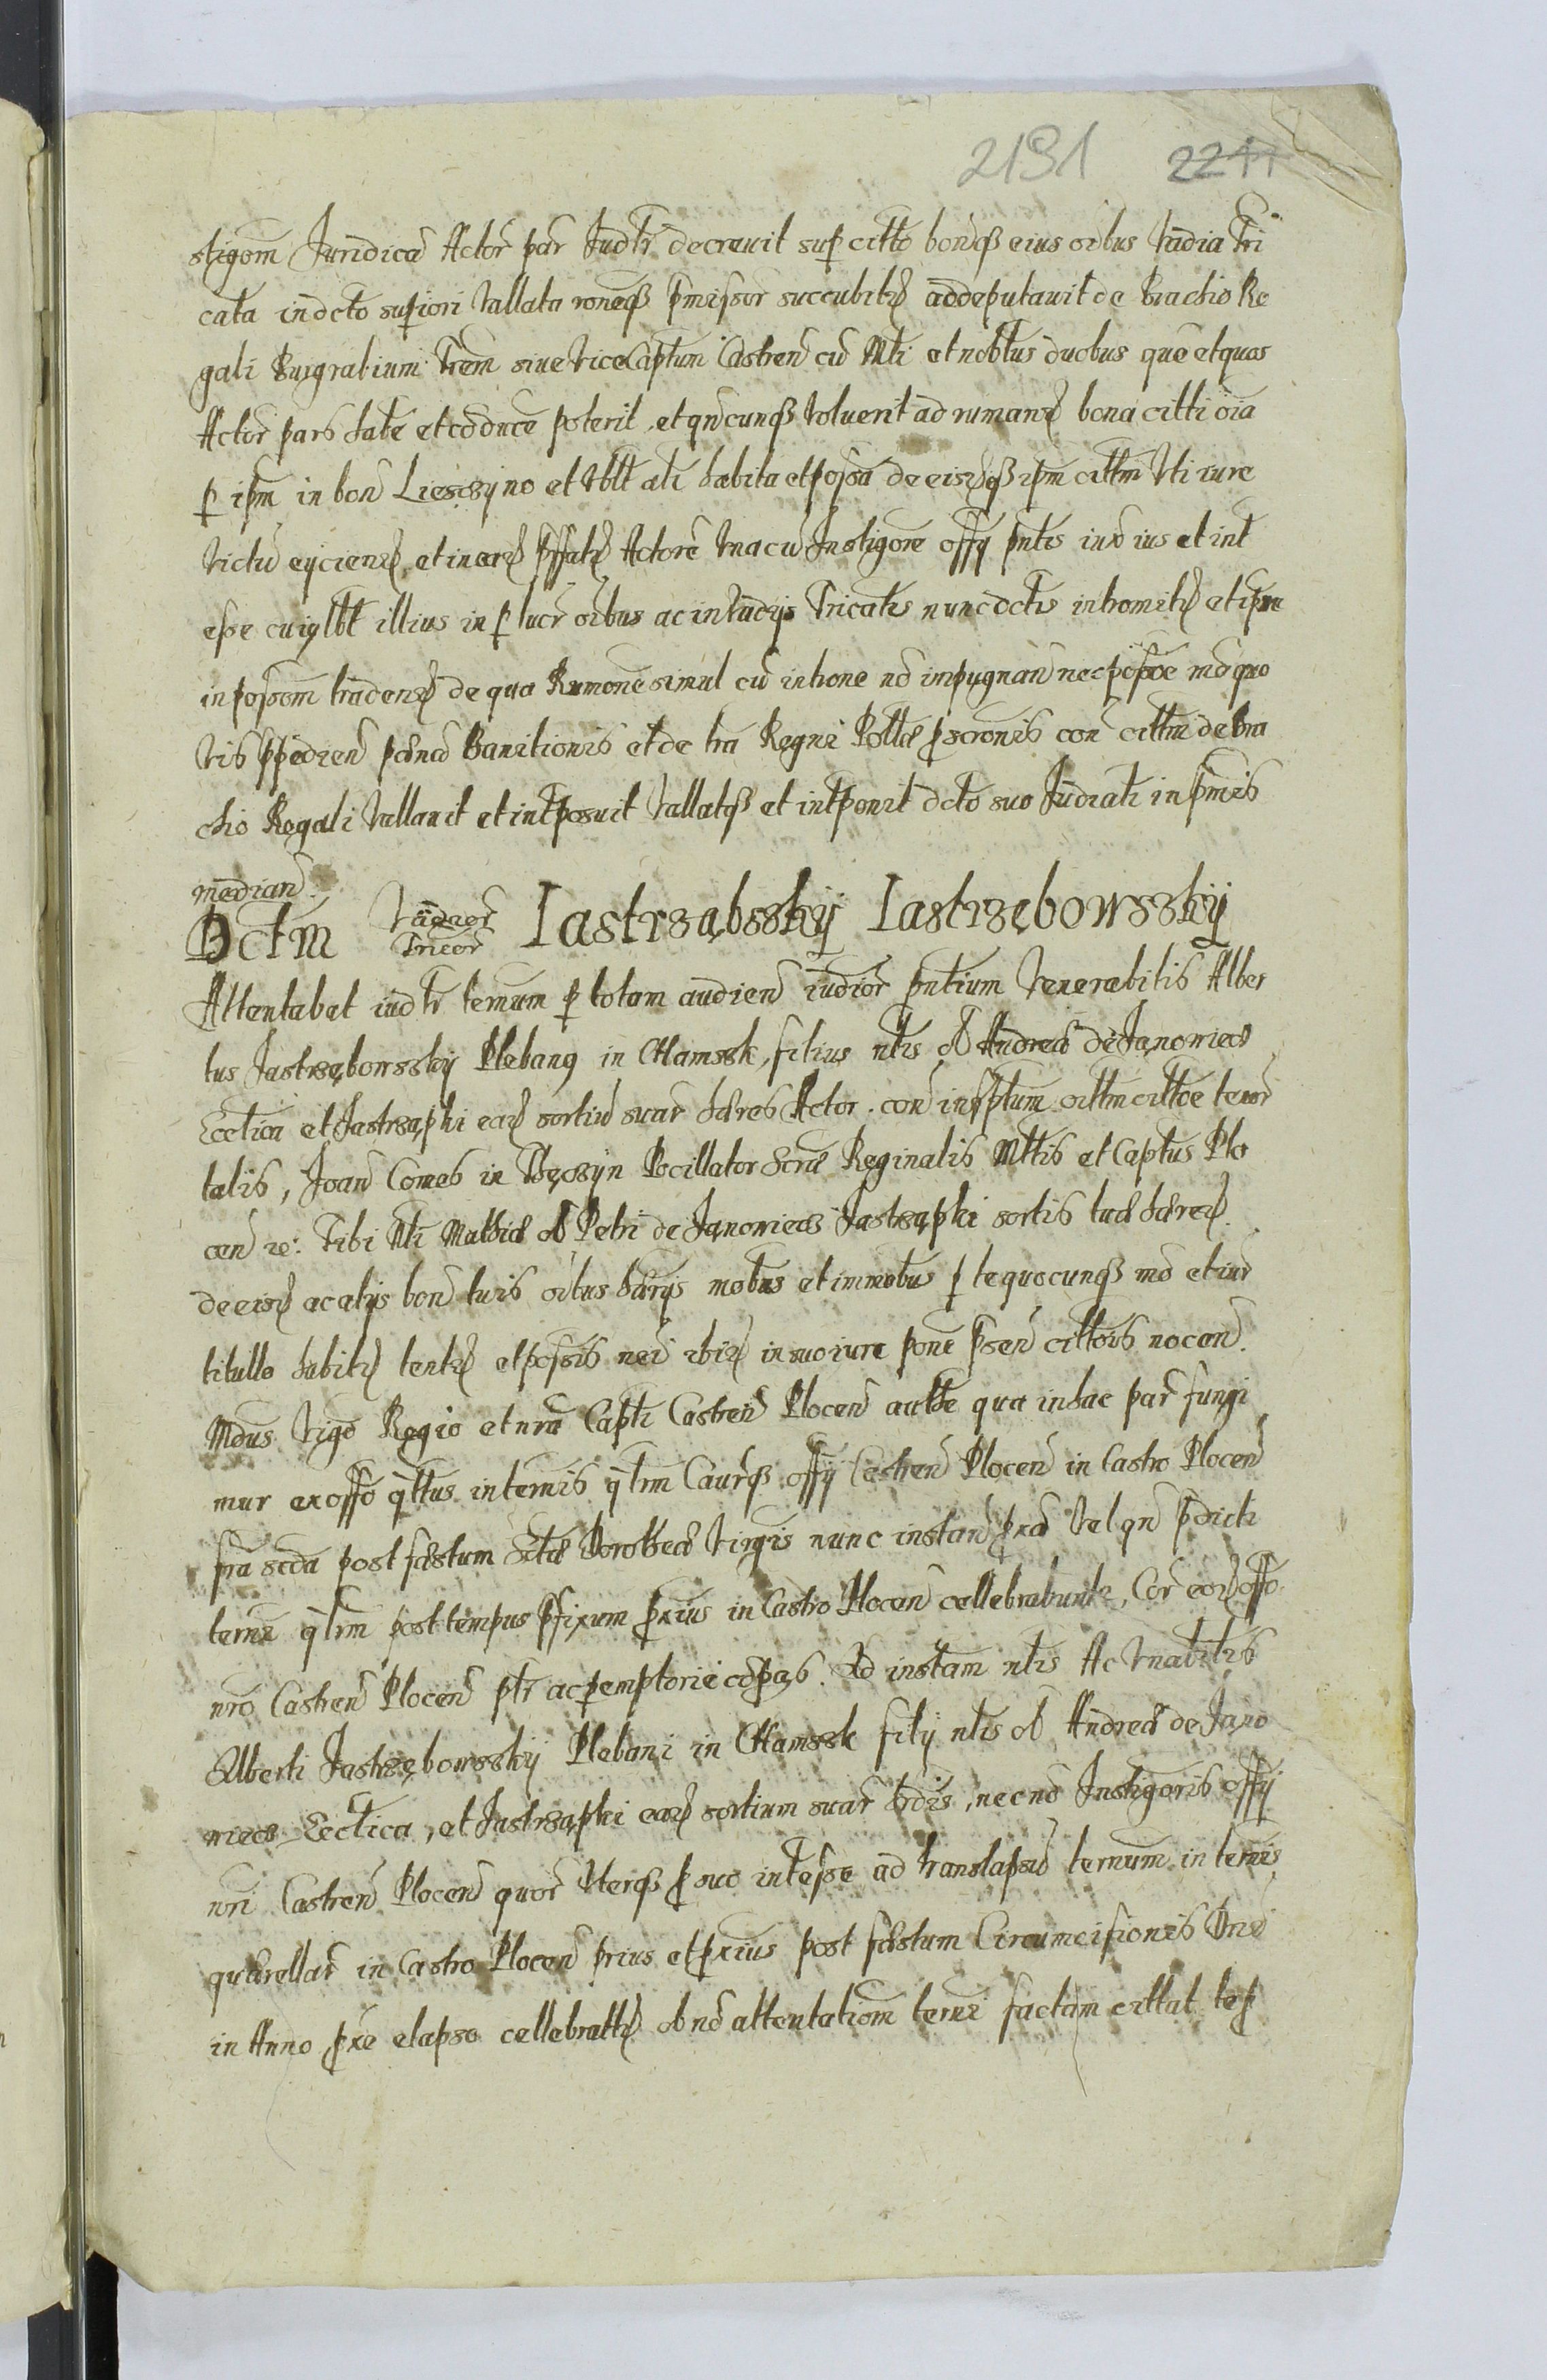 2191 2211
stigom Juridica Actor par Judtr decrevit sup citto bonqз eius oibus Vadia Tri
cata in dcto supiori Vallata roneqз pmissor succubitz addeputavit de brachio Re
gali Burgrabium Trem sive ViceCaptum Castren cu Nli et nobtus duobus que et quos
Actor pars hate et coduce poterit, et qncunqз Voluerit ad rumanz bona citti oia
p ipm in bon Liesczyno et Vblt ali habita et possa de eisdqз ipm cittm Vti iure
Victu eycienz, et in earz pffatz Actore Vna cu Instigore offy pntis iux ius et int
esse cuiuslbt illius in p lucr oibus ac in Vadys Tricatis nunc dctis intromitz et ipm
in possom tradenz de qua Rumone simul cu introne no impugnan nec posse mo quo
Vis ppedien pena Banitionis et de tra Regni Pollae pscronis con cittm de bra
chio Regali Vallavit et intposuit Vallatqз et intponit dcto suo Judiati in pmis
median.
Dctm Vadaor Tricor Iastrząbsskij Iastrzębowsskij
Attentabat iudtr temum p totam audien iudior pntium Venerabilis Alber
tus Jastrzębowsskij Plebang in Chamssk, filius nlis ol Andreae de Janowiecz
Ecctica et Jastrząpki earz sortiu suar haeres Actor. con infptum cittm cittoe tenor
talis, Joan Comes in Tęczyn Pocillator Scrae Reginalis Mttis et Captus Plo
cen ze: Tibi Nli Mathiae ol Petri de Janowiecz Jastrząpki sortis tuae haerez
de eisz ac alys bon tuis oibus haerys mobus et immobus p te quocunqз mo et iur
titullo habitz tentz et possis nei ibiz in suo iure pone psen cittois nocen.
Mdus Vigo Regio et nra Capti Castren Plocen autte qua in hac par fungi
mur ex offo qttus in temis qrlm Caurqз offy Castren Plocen in Castro Plocen
fra scda post faestum Sctae Dorotheae Virgis nunc instan pxa Vel qn pdicti
termi qrlm post tempus pfixum pxius in Castro Plocen cellebrabuntr, Cor eoz offo
nro Castren Plocen ptr ac pemptorie copas. Ad instam nlis Ac Vnabilis
Alberti Jastrzębowsskij Plebani in Chamssk fily nlis ol Andreae de Jano
wiecz Ecctica, et Jastrząpki earz sortium suar hrdis, nec no Instigoris offy
nri Castren Plocen quor Vterqз p suo intesse ad translapsu temum in temis
quaerellar in Castro Plocen prius et pxius post faestum Circumcisionis Dni
in Anno pxe elapso cellebratz ob no attentatiom termi factam cittat te p